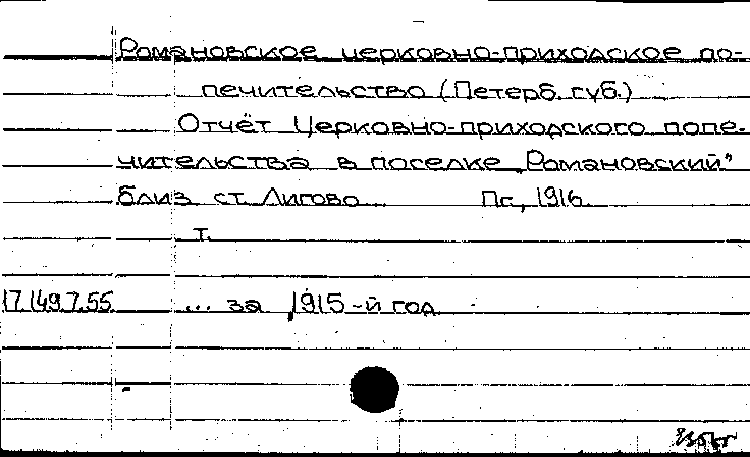 Романовское церковно-приходское по-
печительство (Петерб. губ.)
Отчёт Церковно-приходского попе-
чительства в поселке „Романовский"
близ ст. Лигово Пг., 1916.
т.
17.149.7.55 ... за 1915-й год.